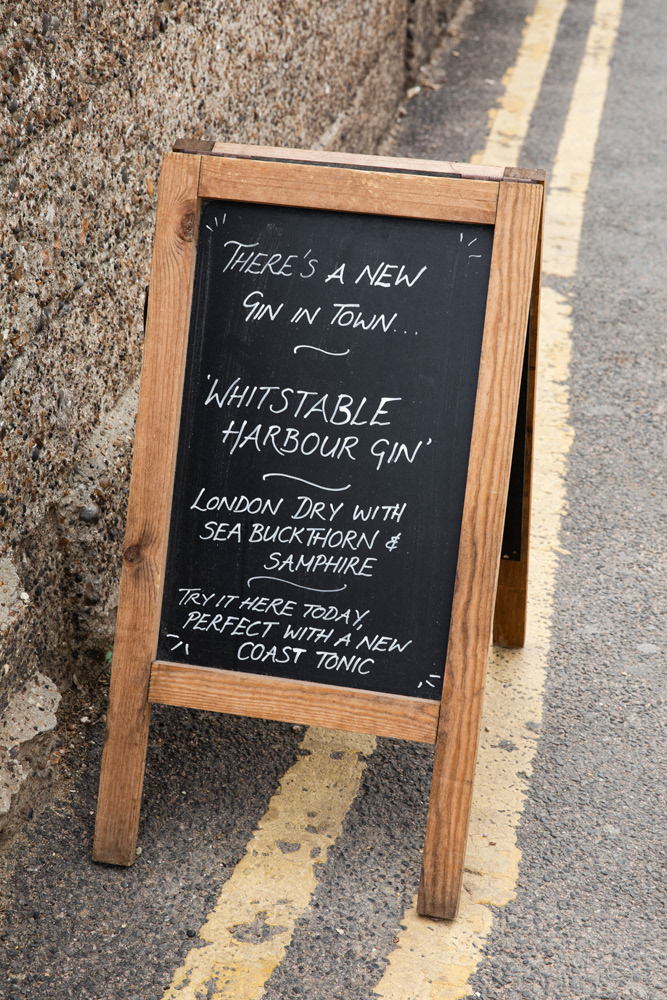 THERE'S A NEW
GIN IN TOWN...
'WHITSTABLE
HARBOUR GIN'
LONDON DRY WITH
SEA BUCKTHORN &
SAMPHIRE
TRY IT HERE TODAY,
PERFECT WITH A NEW
COAST TONIC